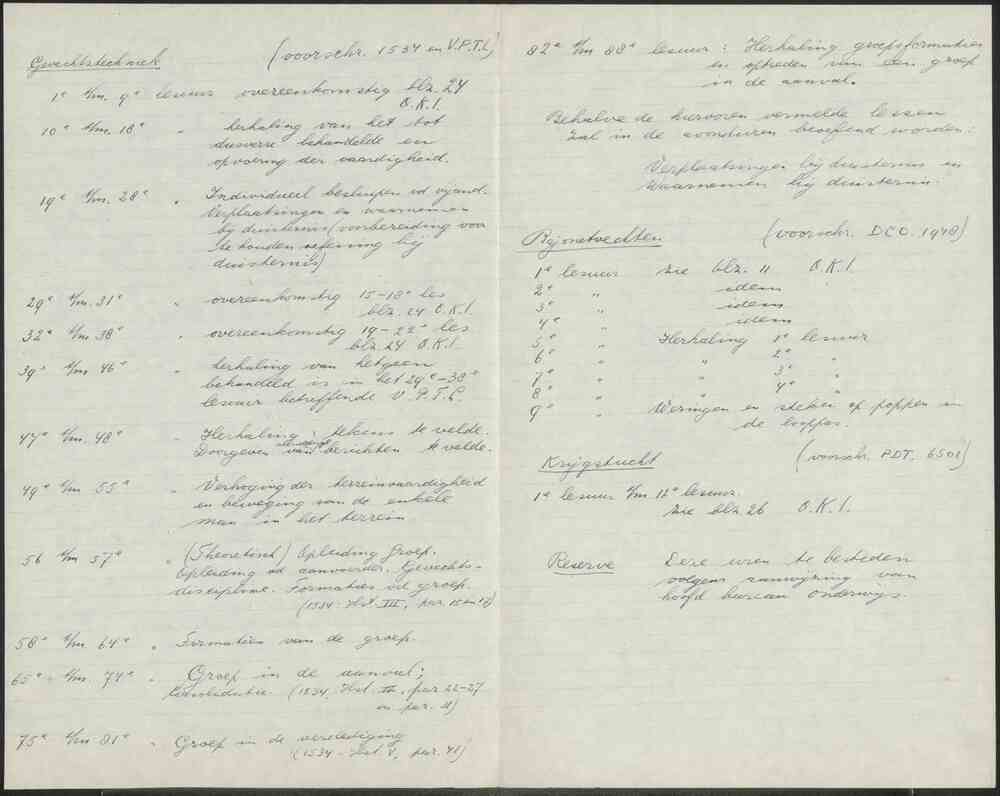 Gevechtstechniek (voorschr. 1534 en V.P.T.L.)
1e t/m. 9e lesuur overeenkomstig blz. 24
O.K.I.
10e t/m. 18e " herhaling van het tot
dusverre behandelde en
opvoering der vaardigheid.
19e t/m. 28e " Individueel besluipen vd vijand.
Verplaatsingen en waarnemen
bij duisternis (voorbereiding voor
te houden oefening bij
duisternis)
29e t/m. 31e " overeenkomstig 15-18e les
blz. 24 O.K.I.
32e t/m 38e " overeenkomstig 19-22e les
blz. 24 O.K.I.
39e t/m 46e " herhaling van hetgeen
behandeld is in het 29e-38e
lesuur betreffende V.P.T.L.
47e t/m. 48e " Herhaling: tekens te velde.
Doorgeven van berichten te velde.
49e t/m 55e " Verhoging der terreinvaardigheid
en beweging van de enkele
man in het terrein
56 t/m 57e " (Theoretisch) Opleiding Groep.
Opleiding vd aanvoerder. Gevechts-
discipline. Formaties vd groep.
(1534. Hst. III, par. 15 en 18)
58e t/m 64e " Formaties van de groep.
65e t/m. 74e " Groep in de aanval;
(1534, Hst. IV, par 22-27
en par. 11)
75e t/m 81e " Groep in de verdediging
(1534 - Hst V, par. 41)
82e t/m 88e lesuur: Herhaling groepsformaties
en optreden van een groep
in de aanval.
Behalve de hiervoren vermelde lessen
zal in de avonduren beoefend worden:
Verplaatsingen bij duisternis en
waarnemen bij duisternis.
Bajonetvechten (voorschr. DCO. 1948)
1e lesuur zie blz. 11 O.K.I.
2e " idem
3e " idem
4e " idem
5e " Herhaling 1e lesuur
6e " " 2e "
7e " " 3e "
8e " " 4e "
9e " Weringen en steken op poppen in
de looppas.
Krijgstucht (voorschr. PDT. 6501)
1e lesuur t/m 12e lesuur.
zie blz 26 O.K.I.
Reserve Deze uren te besteden
volgens aanwijzing van
hoofd bureau onderwijs.